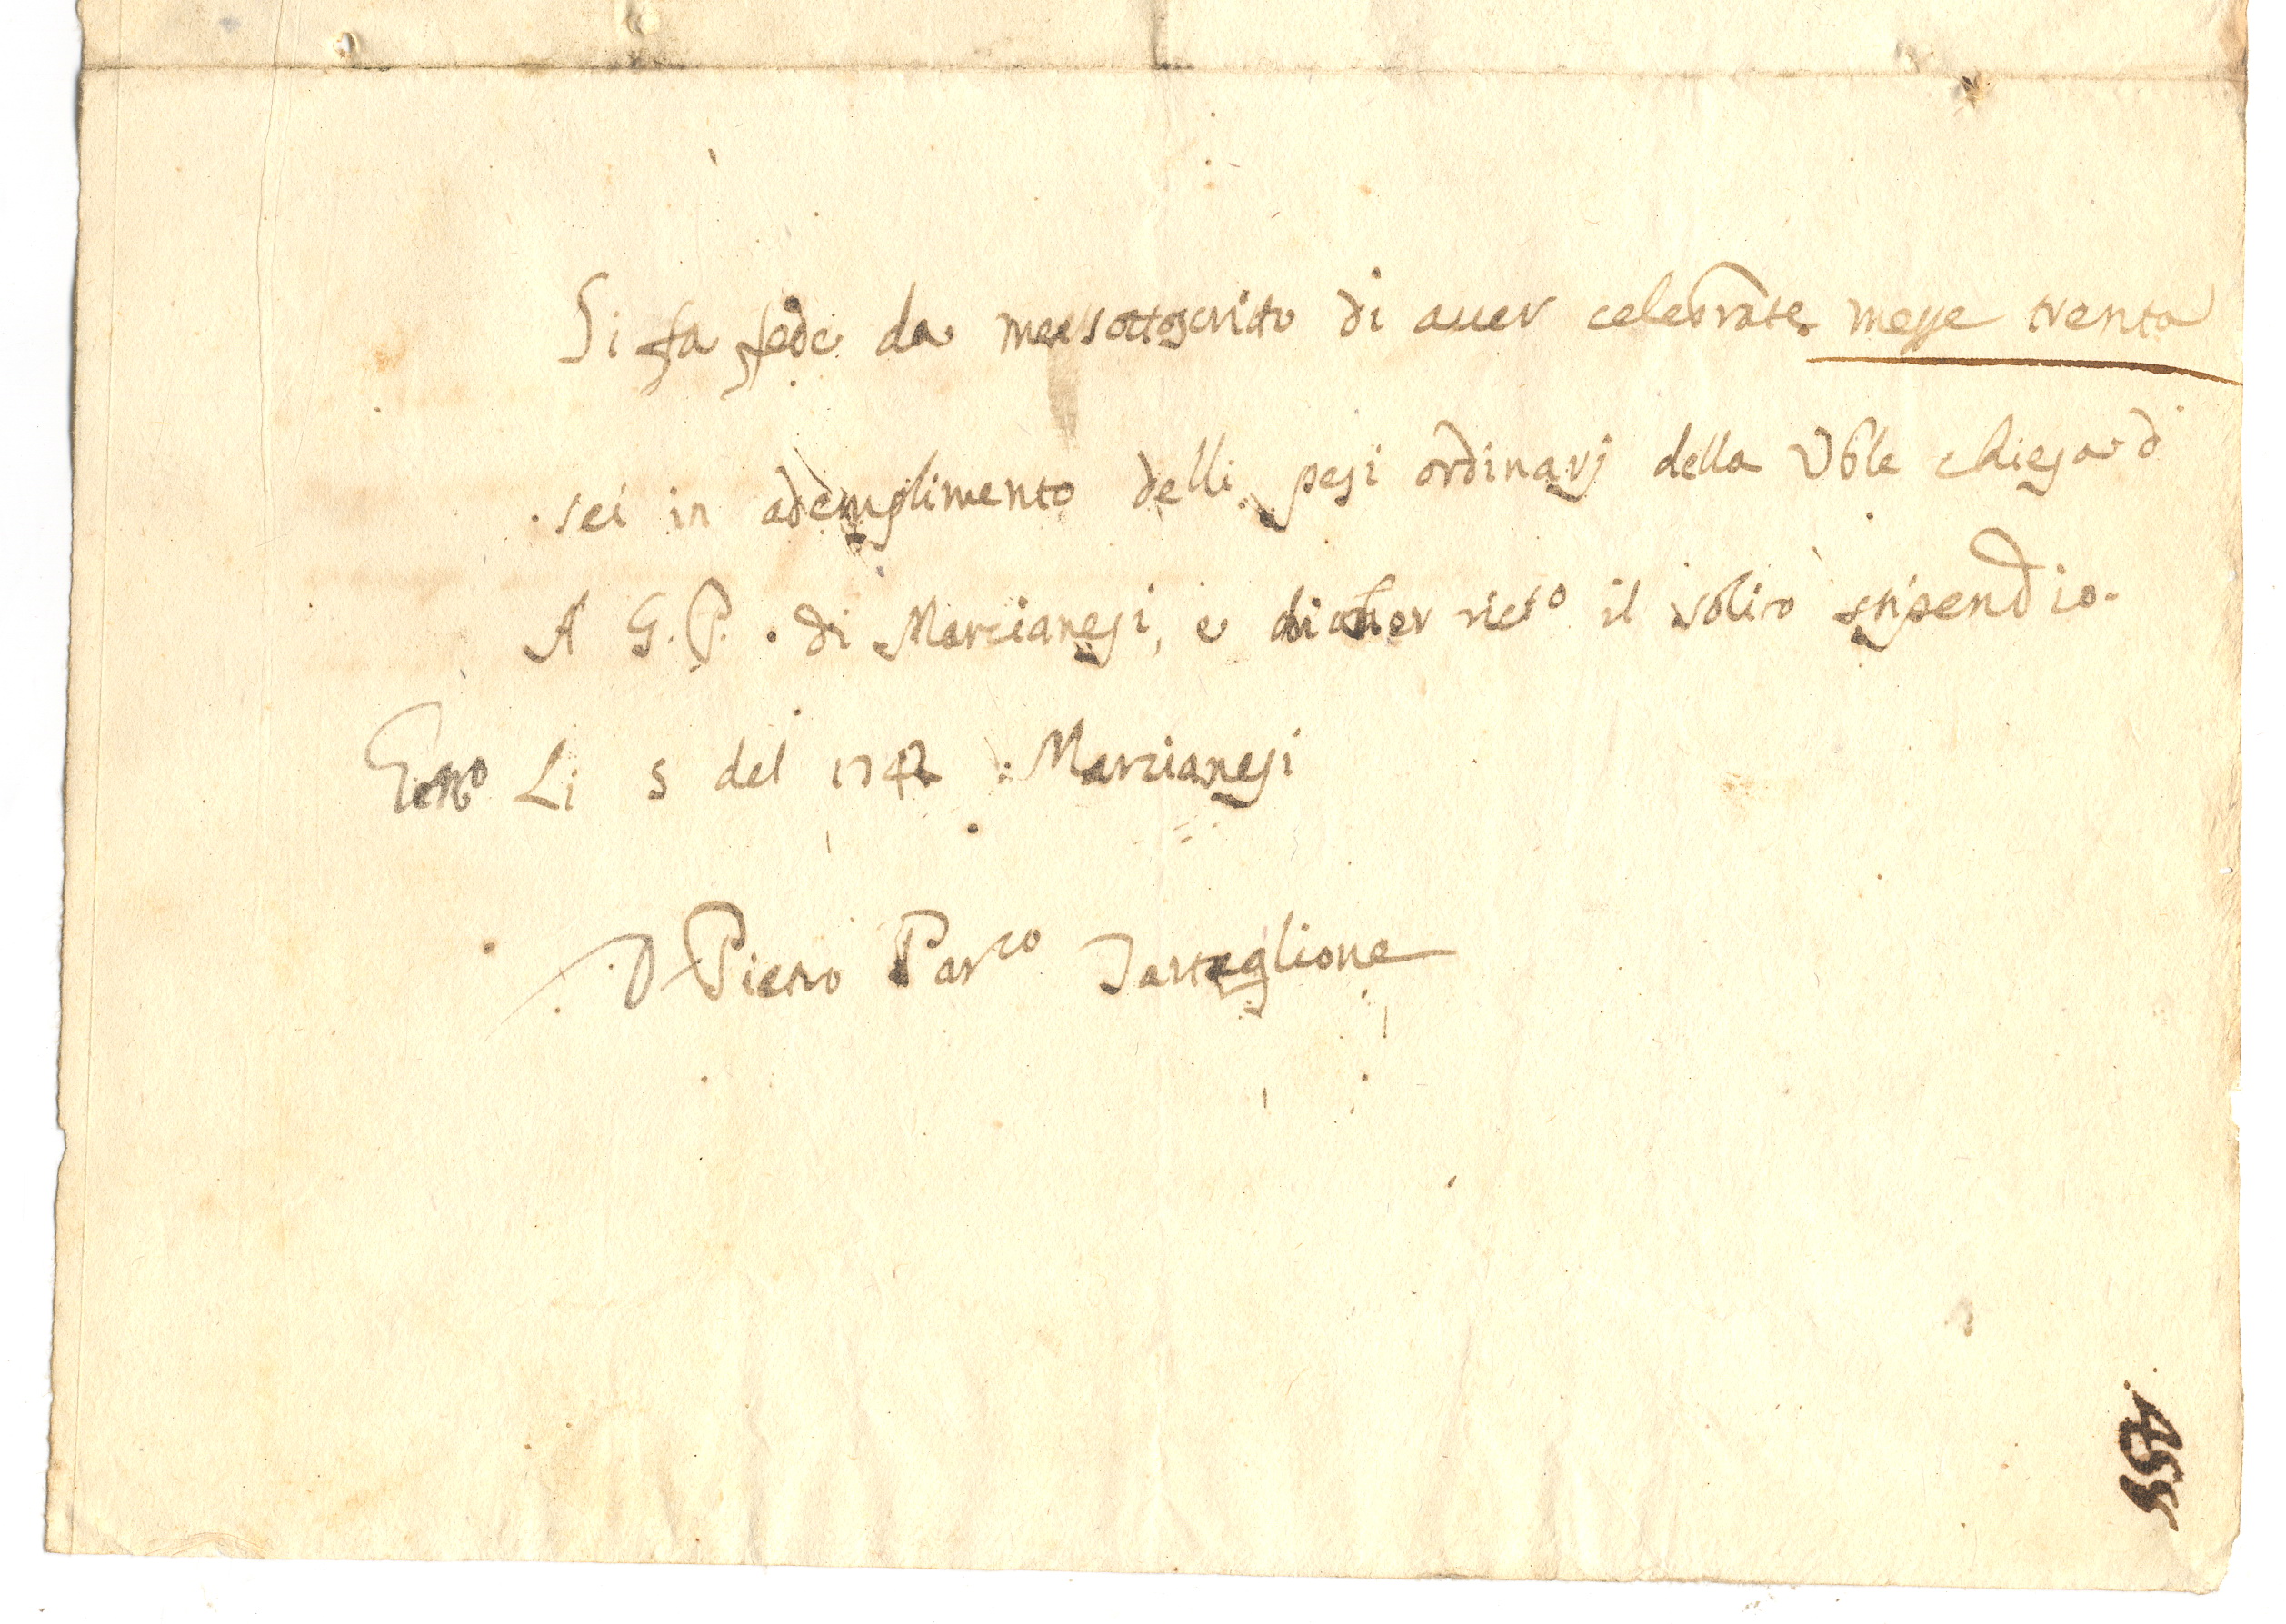 Si fa fede da me sottoscritto di auer celebrate messe trenta
sei in ademplimento delli pesi ordinarj della Vble chiesa d
A G. P. di Marcianesi, e di auer ricto il solito stipendio.
Genro Li 5 del 1742 : Marcianesi
D Pietro Parco Tartaglione